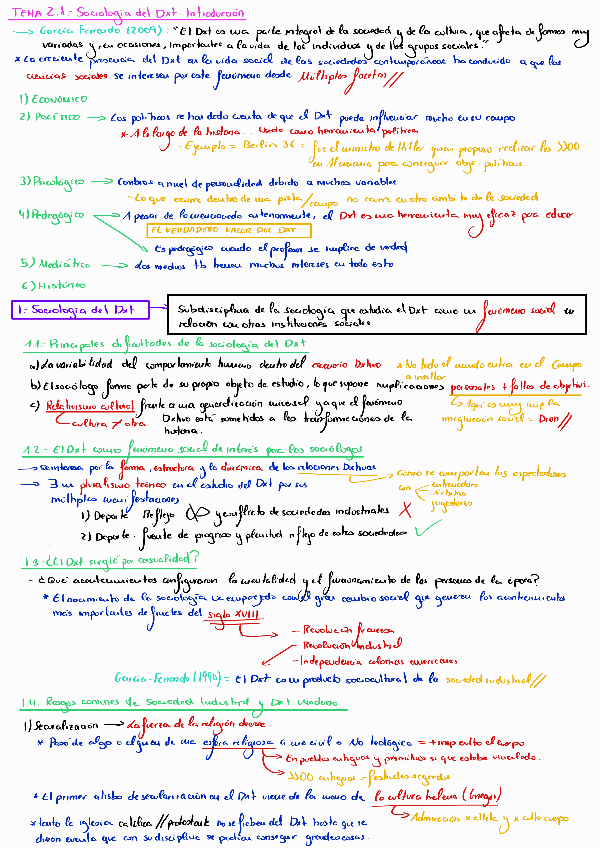 TEMA 2.1.- Sociología del Dxt Introducción
→ García Ferrando (2009): "El Dxt es una parte integral de la sociedad y de la cultura, que afecta de formas muy
variadas y, en ocasiones, importantes a la vida de los individuos y de los grupos sociales."
* La creciente presencia del Dxt en la vida social de las sociedades contemporáneas ha conducido a que las
ciencias sociales se interesen por este fenómeno desde Múltiples facetas //
1) Económico
2) Político → Los políticos se han dado cuenta de que el Dxt puede influenciar mucho en su campo
* A lo largo de la historia... Usado como herramienta política
- Ejemplo = Berlín 36 = fue el ministro de Hitler quien propuso realizar los JJOO
en Alemania para conseguir obje. políticos.
3) Psicológico → Cambios a nivel de personalidad debido a muchas variables
- Lo que ocurre dentro de una pista/campo no ocurre en otro ámbito de la sociedad
4) Pedagógico → A pesar de lo mencionado anteriormente, el Dxt es una herramienta muy eficaz para educar
EL VERDADERO VALOR DEL DXT
Es pedagógico cuando el profesor se implica de verdad
5) Mediático → Los medios tb tienen muchos intereses en todo esto
6) Histórico
1.- Sociología del Dxt → Subdisciplina de la sociología que estudia el Dxt como un fenómeno social en
relación con otras instituciones sociales
1.1.- Principales dificultades de la sociología del Dxt
a) La variabilidad del comportamiento humano dentro del escenario Dxtivo * No todo el mundo entra en el Campo
a insultar
b) El sociólogo forma parte de su propio objeto de estudio, lo que supone implicaciones personales + faltas de objetivi.
c) Relativismo cultural frente a una generalización universal ya que el fenómeno
Aquí es muy imp la
cultura ≠ otra Dxtivo está sometidos a las transformaciones de la
historia.
1.2.- El Dxt como fenómeno social de interés por los sociólogos
→ Se interesa por la forma, estructura y la dinámica de las relaciones Dxtivas
Cómo se comportan los espectadores
con entrenadores
árbitros
jugadores
→ ∃ un pluralismo teórico en el estudio del Dxt por sus
múltiples manifestaciones
1) Deporte Reflejo y conflicto de sociedades industriales X
2) Deporte. fuente de progreso y plenitud reflejo de estas sociedades ✓
1.3.- ¿El Dxt surgió por casualidad?
- ¿Qué acontecimientos configuraron la mentalidad y el funcionamiento de las personas de la época?
* El nacimiento de la sociología va emparejado con el gran cambio social que generan los acontecimientos
más importantes de finales del siglo XVIII
- Revolución francesa
- Revolución Industrial
- Independencia colonias americanas
García-Ferrando (1990) = El Dxt como producto sociocultural de la sociedad industrial //
1.4.- Rasgos comunes de Sociedad Industrial y Dxt Moderno
1) Secularización → La fuerza de la religión decae.
* Paso de algo o alguien de una esfera religiosa a una civil o No teológico = + imp culto al cuerpo
En pueblos antiguos y primitivos sí que estaba vinculado.
JJOO antiguos = festivales sagrados
* El primer atisbo de secularización en el Dxt viene de la mano de la cultura helena (Griegos)
Admiración x atleta y x culto cuerpo
* tanto la iglesia católica // protestante no se fiaban del Dxt hasta que se
dieron cuenta que con su disciplina se podían conseguir grandes cosas.